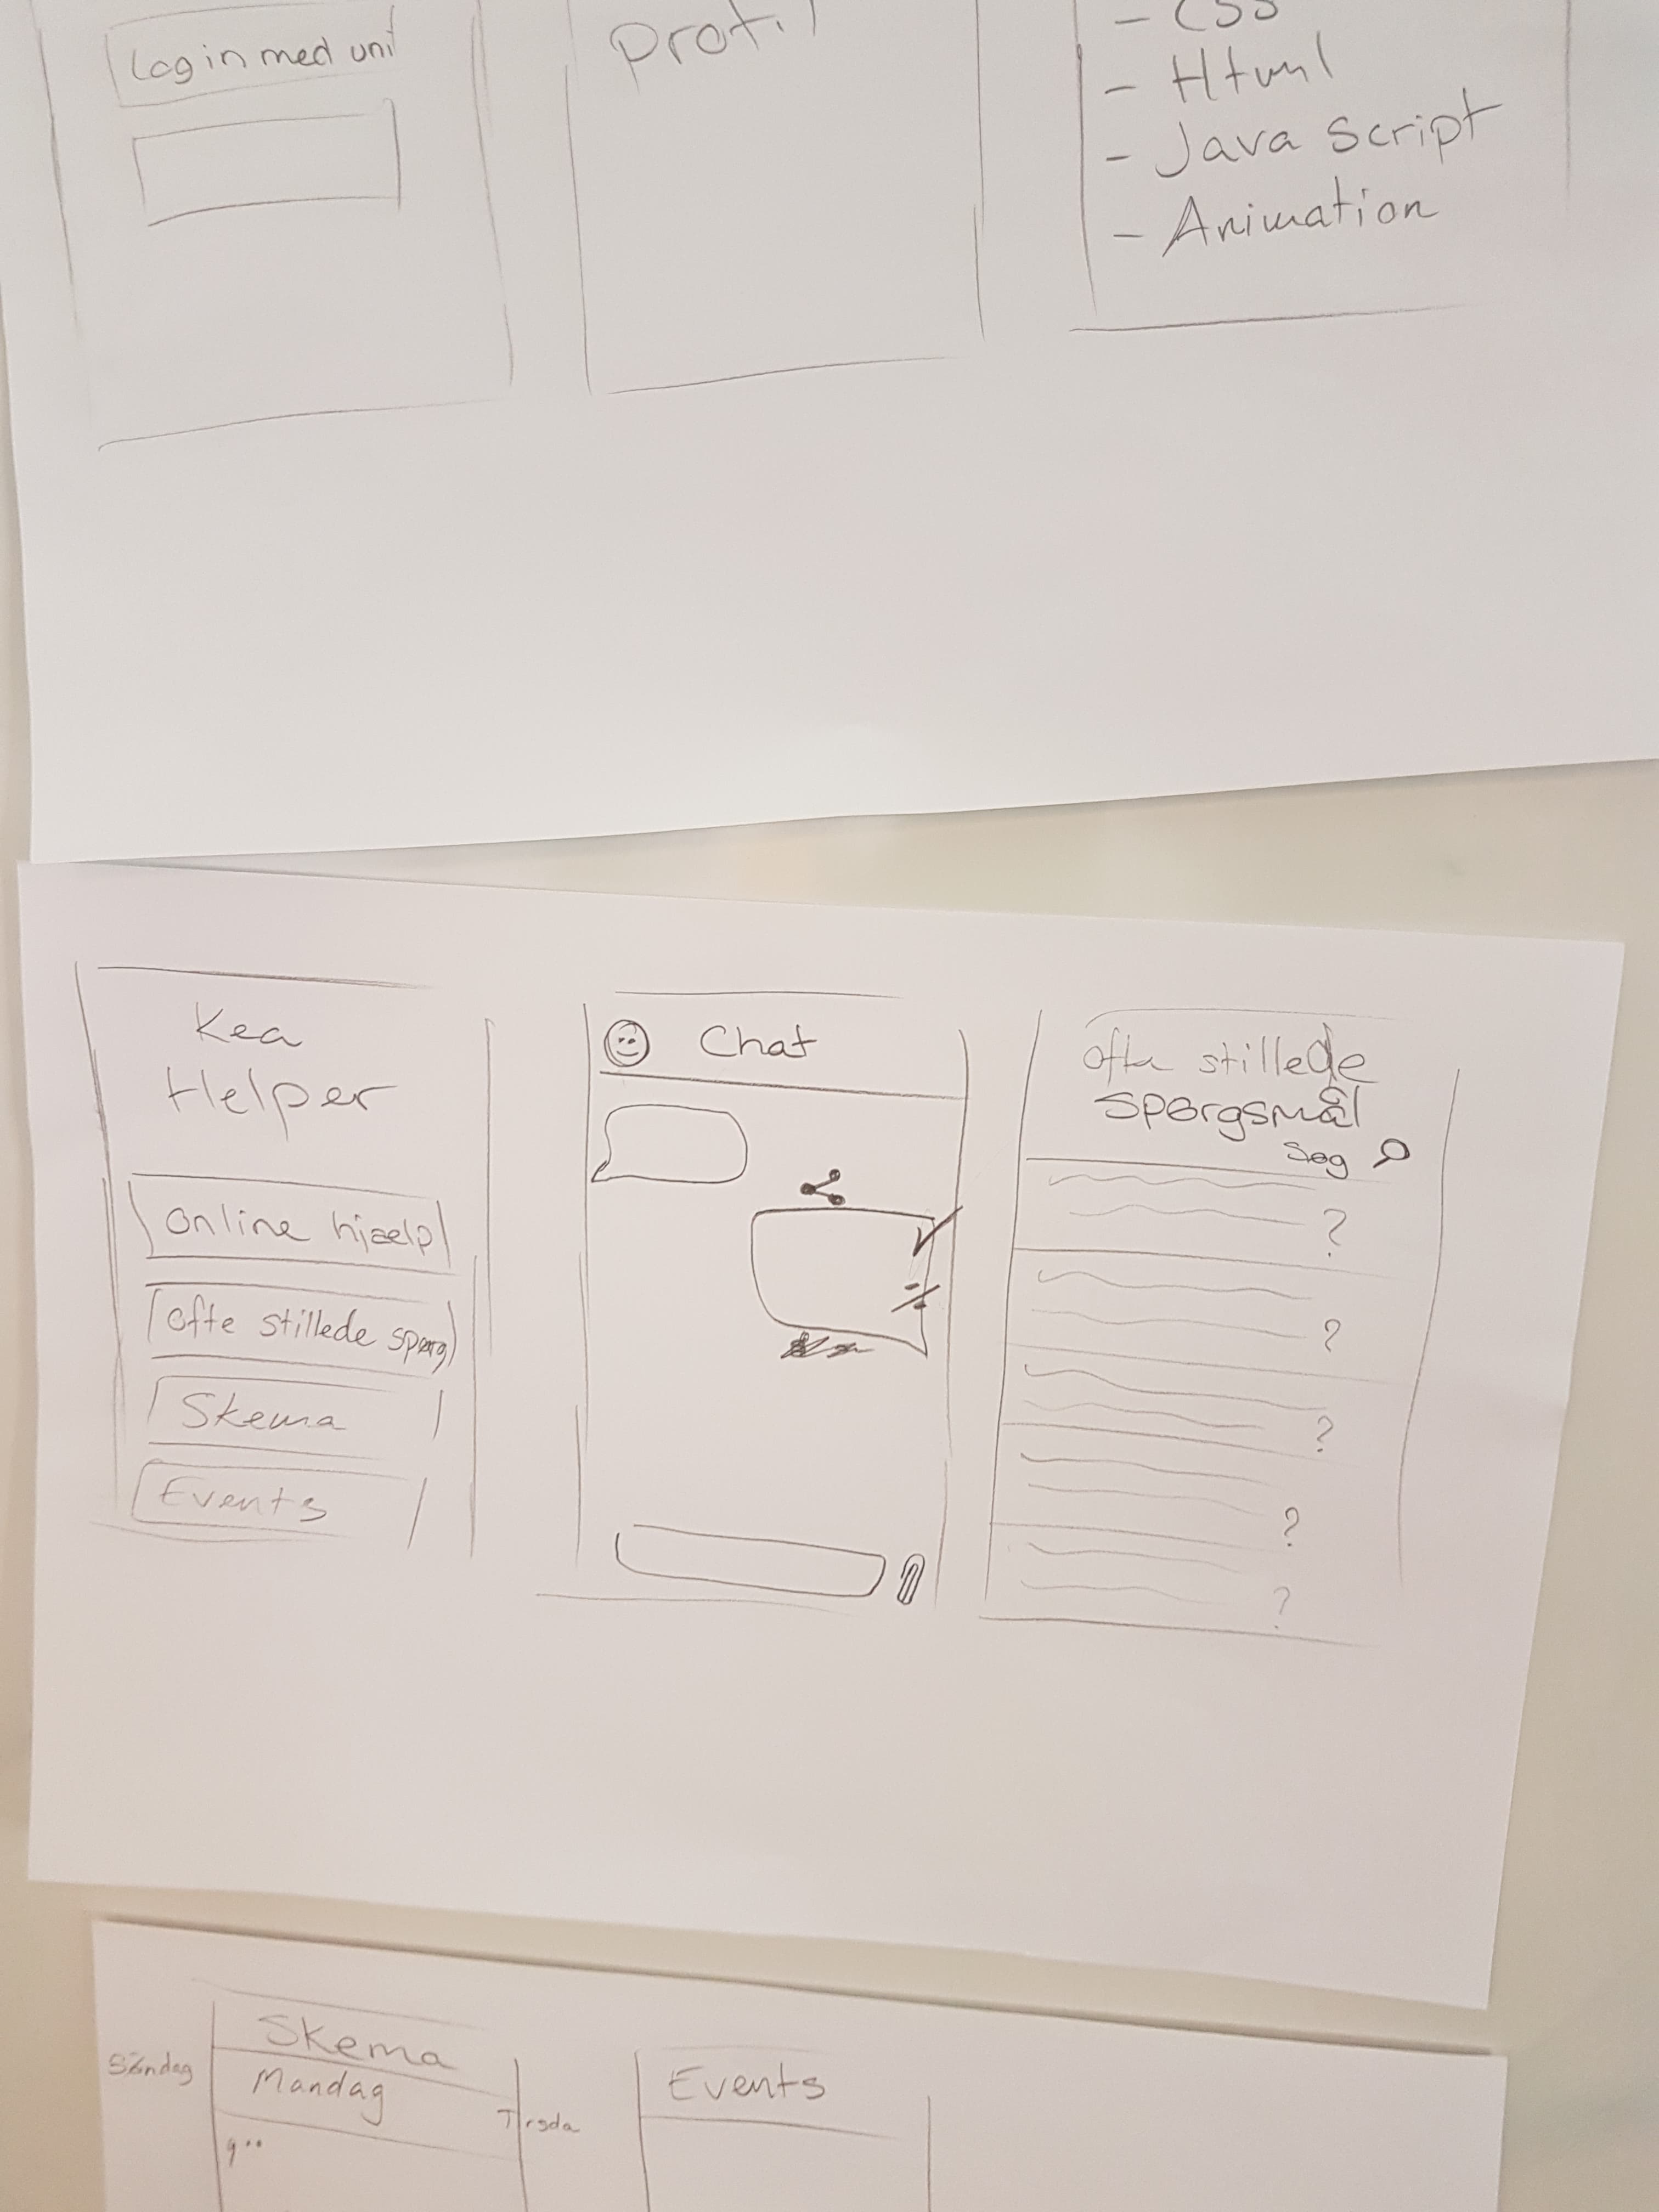 Log in med uni
Profil
- CSS
- Html
- Java Script
- Animation
Kea
Helper
online hjælp
ofte stillede spørg
Skema
Events
Chat
ofte stillede
spørgsmål
Søg
?
?
?
?
?
Skema
Søndag
Mandag
Tirsda
9⁰⁰
Events